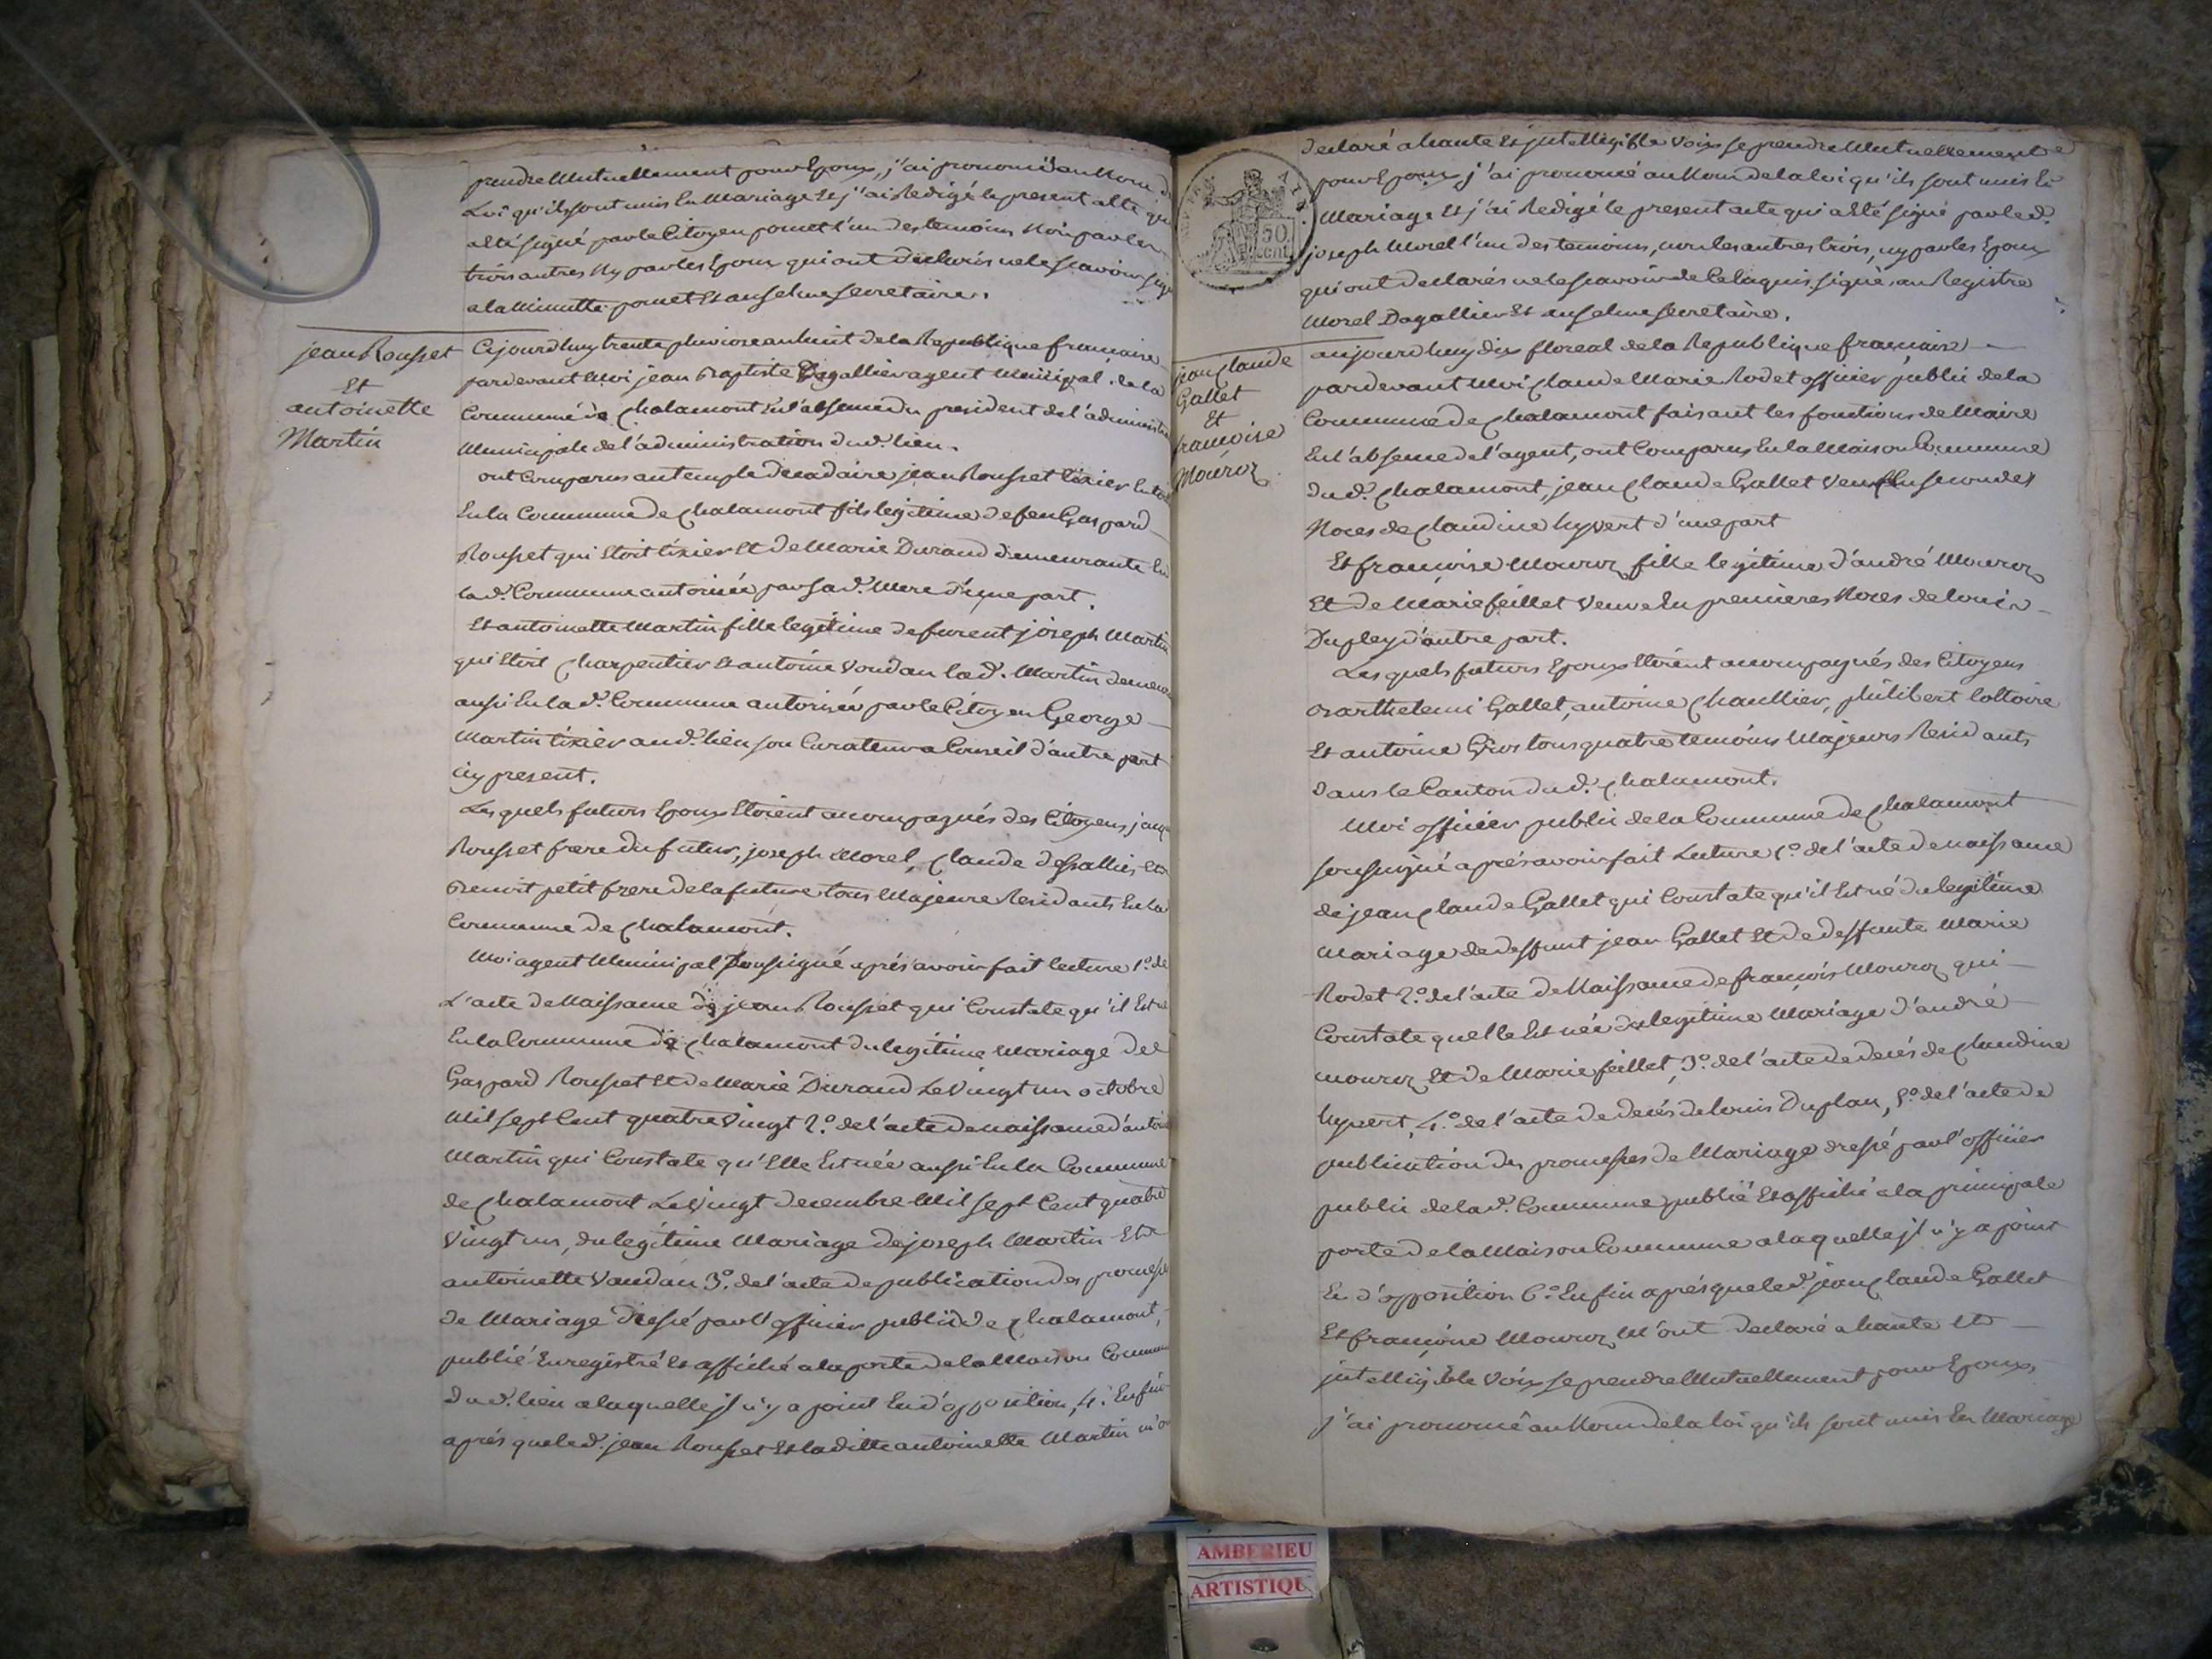 prendre Mutuellement pour Epoux, j'ai prononcé au Nom de
Loi qu'ils sont unis En Mariage Et j'ai Redigé le present acte qui
a Eté signé par le Citoyen pomet l'un des temoins Non par les
trois autres Ny par les Epoux qui ont declarés ne le scavoir signé
a la Minutte pomet Et anselme secretaire.
jean Rousset
Et
antoinette
Martin
Cejourd'huy trente pluviose an huit de la Republique francaise
pardevant Moi jean Baptiste Dagallier agent Municipal de la
Commune de Chalamont En l'absence du president de l'administration
Municipale de l'administration dud. lieu.
ont Comparus au temple decadaire jean Rousset tixier
En la Commune de Chalamont fils legitime de feu Gaspard
Rousset qui Etoit tixier Et de Marie Durand demeurante En
lad. Commune autorisée par sad. Mere d'une part.
Et antoinette Martin fille legitime de furent joseph Martin
qui Etoit Charpentier Et antoine Voudan lad. Martin demeurante
aussi En lad. Commune autorisée par le Citoyen George
Martin tixier aud. lieu son Curateur a Conseil d'autre part
icy present.
Lesquels futurs Epoux Etoient accompagnés des Citoyens
Rousset frere du futur, joseph Morel, Claude Desgallier et
Benoit petit frere de la future tous Majeurs Residants En la
Commune de Chalamont.
Moi agent Municipal soussigné aprés avoir fait lecture 1.º de
L'acte de Naissance de jean Rousset qui Constate qu'il Est né
En la Commune de Chalamont du legitime Mariage de
Gaspard Rousset Et de Marie Durand Le Vingt un octobre
Mil sept Cent quatre Vingt 2.º de l'acte de naissance d'antoinette
Martin qui Constate qu'Elle Est née aussi En la Commune
de Chalamont Le Vingt decembre Mil sept Cent quatre
Vingt un, du legitime Mariage de joseph Martin Et
antoinette Vaudan 3.º de l'acte de publication des promesses
de Mariage dressé par l'officier public de Chalamont,
publié Enregistré Et affiché a la porte de la Maison Commune
dud. lieu a laquelle jl n'y a point Eu d'opposition, 4.º Enfin
aprés que led. jean Rousset Et laditte antoinette Martin m'ont
declaré a haute Et jntelligible Voix se prendre Mutuellement
pour Epoux j'ai prononcé au Nom de la loi qu'ils sont unis En
Mariage Et j'ai Redigé le present acte qui a Eté signé par led.
joseph Morel l'un des temoins, non les autres trois, ny par les Epoux
qui ont declarés ne le scavoir de Ce Enquis signé au Registre
Morel Dagallier Et anselme secretaire.
jean Claude
Gallet
Et
francoise
Mouroz
aujourd'huy dix floreal de la Republique francaise
pardevant Moi Claude Marie Rodet officier public de la
Commune de Chalamont faisant les fonctions de Maire
En l'absence de l'agent, ont Comparus En la Maison Commune
dud. Chalamont, jean Claude Gallet Veuf En secondes
Noces de Claudine hyvert d'une part
Et francoise Mouroz fille legitime d'andré Mouroz
Et de Marie feillet Veuve En premieres Noces de louis
Dupley d'autre part.
Lesquels futurs Epoux Etoient accompagnés des Citoyens
Barthelemi Gallet, antoine Chaullier, philibert loltoire
Et antoine Gros tous quatre temoins Majeurs Residants
dans le Canton dud. Chalamont.
Moi officier public de la Commune de Chalamont
soussigné aprés avoir fait Lecture 1.º de l'acte de naissance
de jean Claude Gallet qui Constate qu'il Est né du legitime
Mariage de deffunt jean Gallet Et de deffunte Marie
Rodet 2.º de l'acte de Naissance de francois Mouroz qui
Constate quelle Est née du legitime Mariage d'andré
mouroz Et de Marie feillet, 3.º de l'acte de decés de Claudine
hyvert, 4.º de l'acte de decés de louis Duplan, 5.º de l'acte de
publication des promesses de Mariage dressé par l'officier
public de lad. Commune publié Et affiché a la principale
porte de la Maison Commune a laquelle jl n'y a point
Eu d'opposition 6.º Enfin aprés que led. jean Claude Gallet
Et francoise Mouroz M'ont declaré a haute Et
jntelligible Voix se prendre Mutuellement pour Epoux,
j'ai prononcé au Nom de la loi qu'ils sont unis En Mariage
50
cent
AMBERIEU
ARTISTIQU